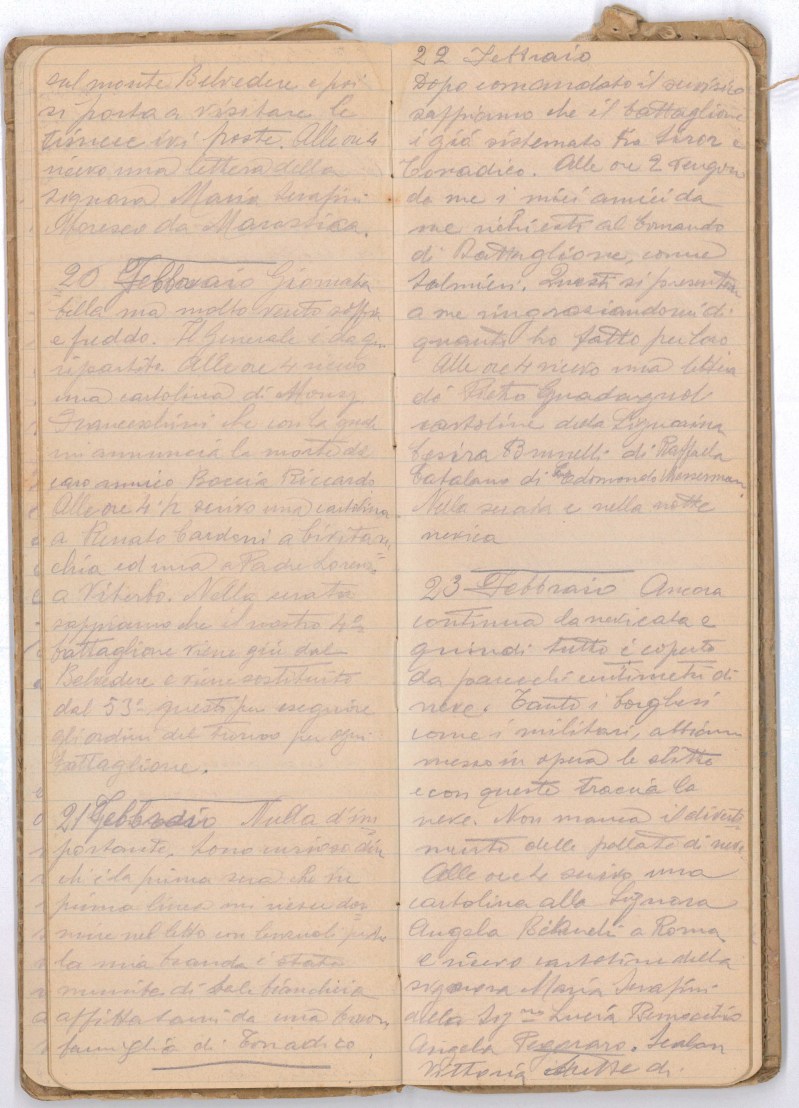 sul monte Belvedere e poi
si porta a visitare le
trincee ivi poste. Alle ore 4
ricevo una lettera della
signora Maria Serafini
Moresco da Marostica.
20 Febbraio Giornata
bella ma molto vento soffia
e freddo. Il Generale è da qui
ripartito. Alle ore 4 ricevo
una cartolina di Mons.
Franceschini che con la quale
mi annuncia la morte del
caro amico Baccia Riccardo
Alle ore 4 ½ scrivo una cartolina
a Renato Cardoni a Civitavec
chia ed una a Padre Lorenzo
a Viterbo. Nella serata
sappiamo che il nostro 4º
battaglione viene giù dal
Belvedere e viene sostituito
dal 53º questo per eseguire
gli ordini del turno per ogni
battaglione.
21 Febbraio Nulla d'im
portante. Sono curioso di
ch è la prima sera che in
prima linea mi riesce dor
mire nel letto con lenzuoli
la mia branda è stata
munita di tale biancheria
affittatami da una buon
famiglia di Tonadico
22 Febbraio
Dopo comandato il servizio
sappiamo che il battaglione
è già sistemato fra Siror e
Tonadico. Alle ore 2 vengon
da me i miei amici da
me richiesti al Comando
di Battaglione, come
Salmieri. Questi si presentan
a me ringraziandomi di
quanto ho fatto per loro
Alle ore 4 ricevo una lettera
di Pietro Guadagnol
cartoline della Signorina
Cesira Brunelli di Raffaela
Catalano di Edomondo
Nella serata e nella notte
nevica
23 Febbraio Ancora
continua la nevicata e
quindi tutto è coperto
da parecchi centimetri di
neve. Tanto i borghesi
come i militari, abbiamo
messo in opera le slitte
e con queste traccia la
neve. Non manca il diverti
mento delle pallate di neve
Alle ore 4 scrivo una
cartolina alla Signora
Angela a Roma
e ricevo cartoline della
signora Maria Serafini
della Sig.na Lucia
Angela Pegoraro. Scalon
Vittoria tutte di